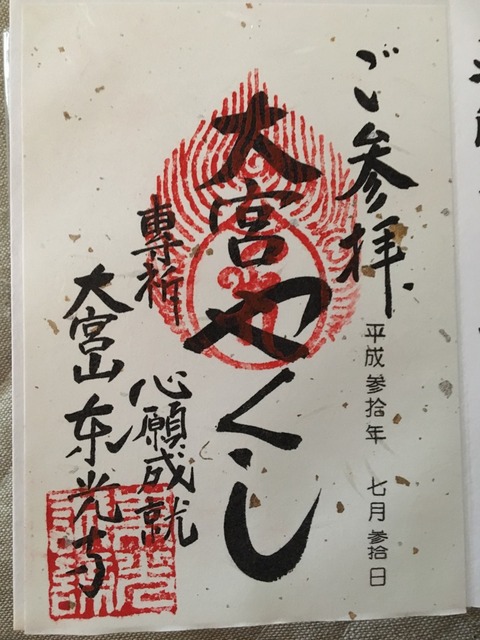 ご参拝
平成参拾年 七月参拾日
大宮やくし
專祈 心願成就
大宮山東光寺